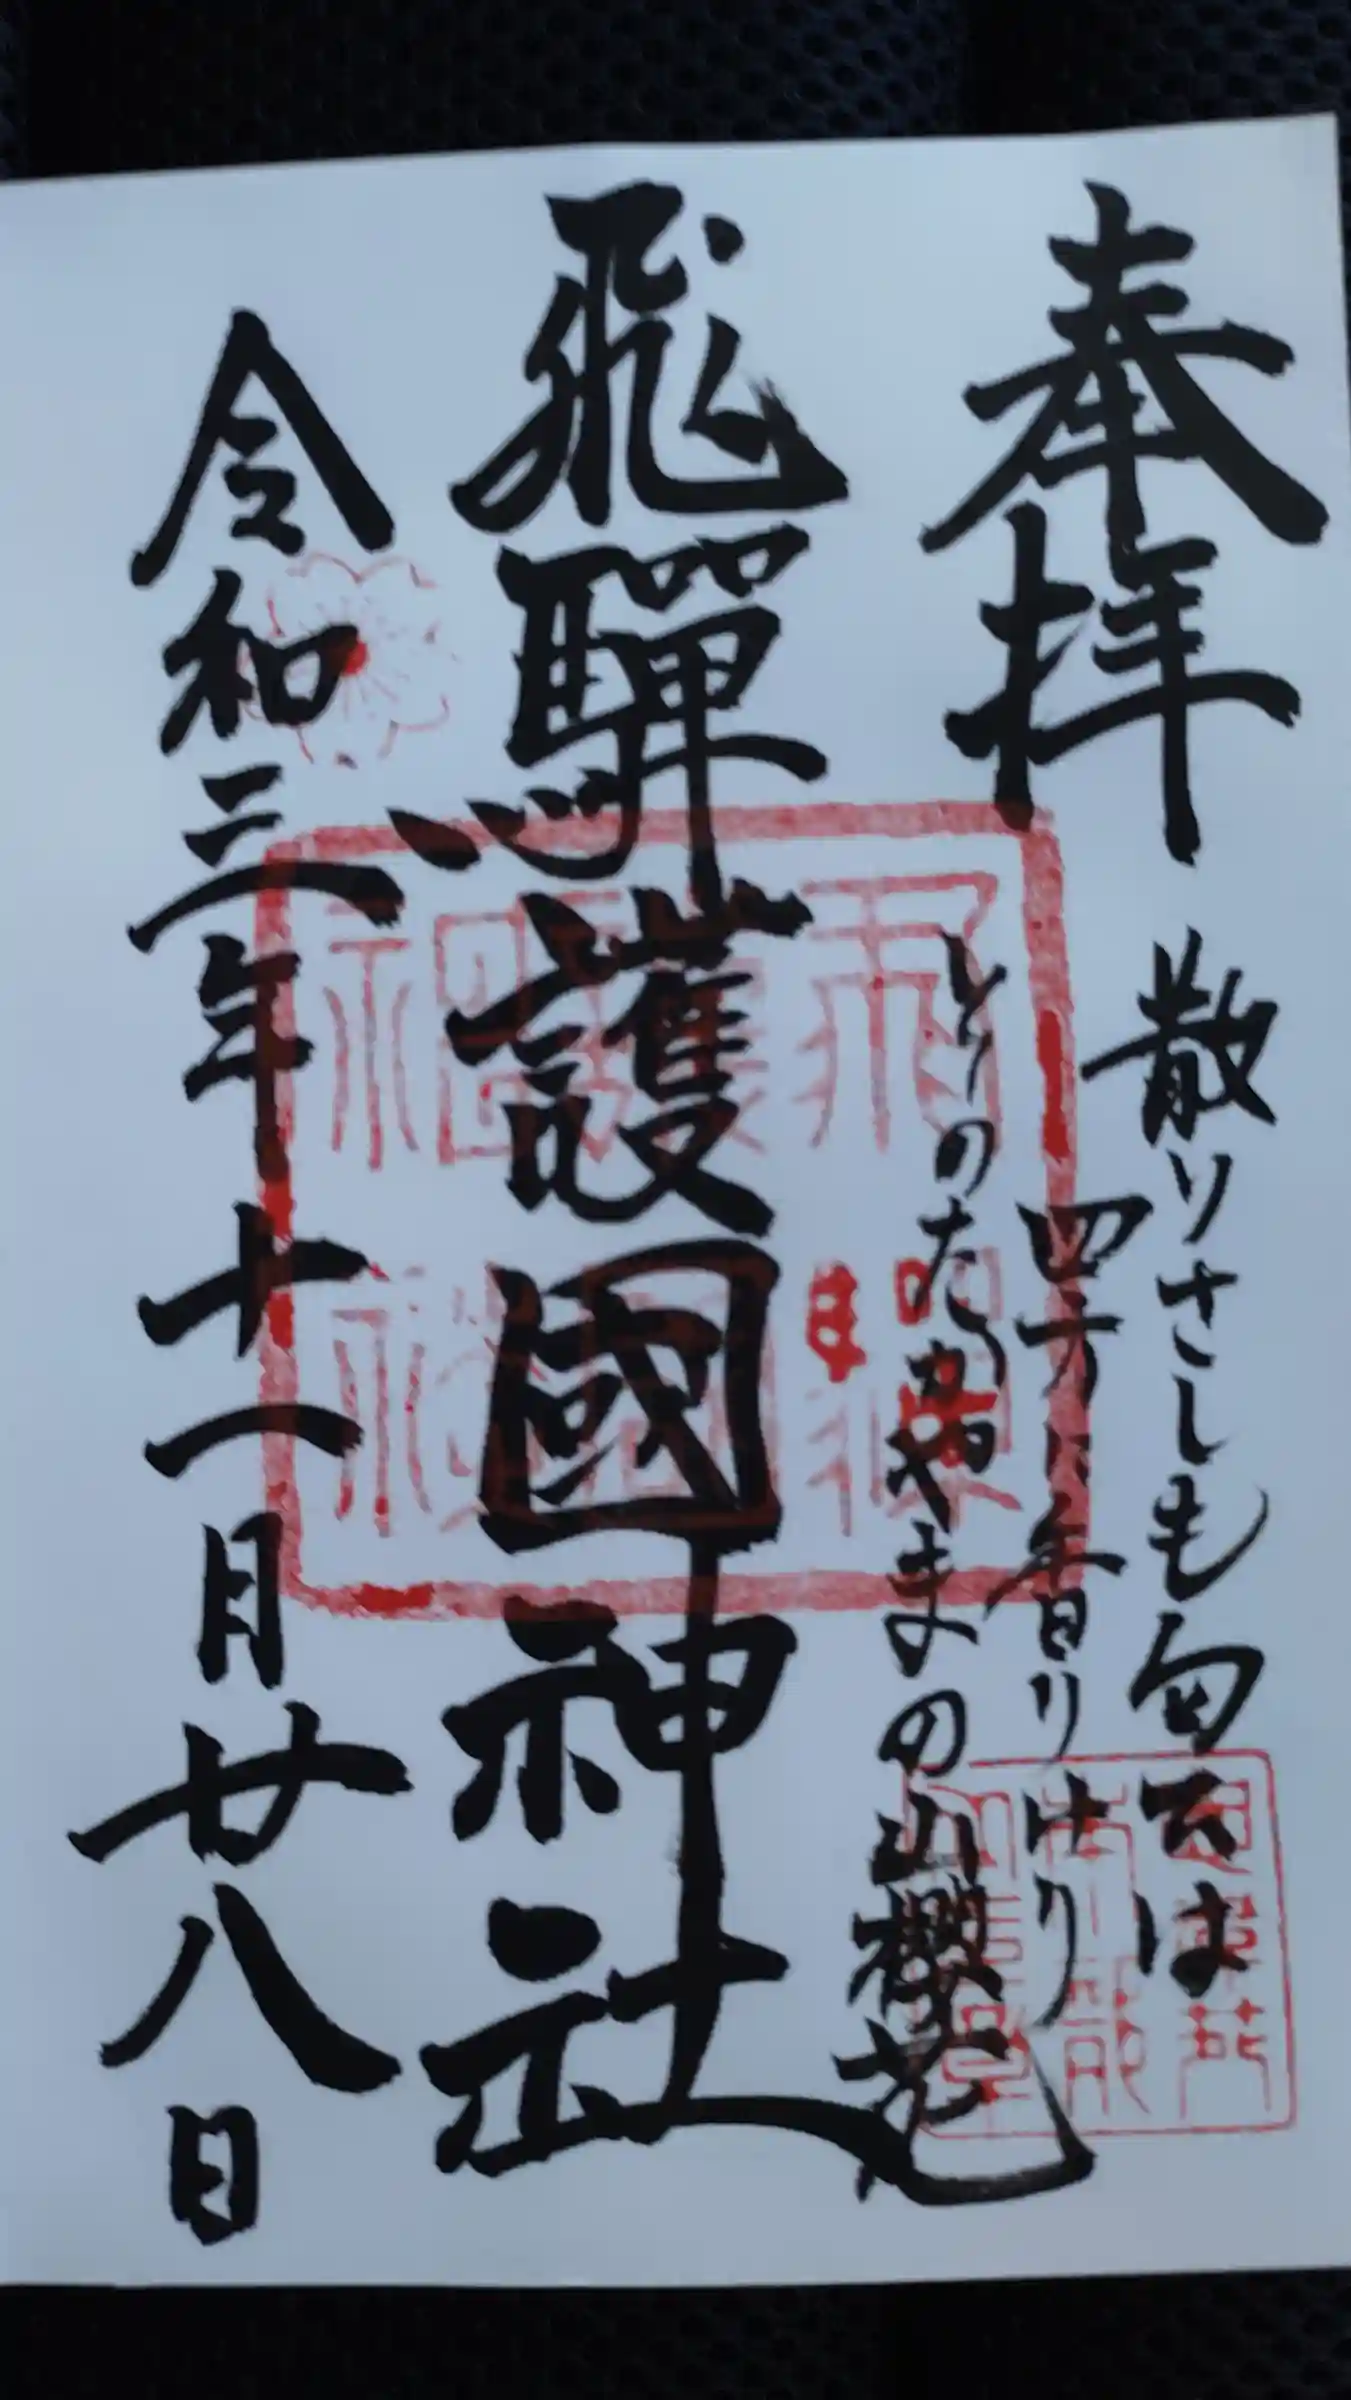 奉拝
散りさしも匂では
四方に香りけり
とりのたかやまの山櫻花
飛驒護國神社
令和三年十一月廿八日